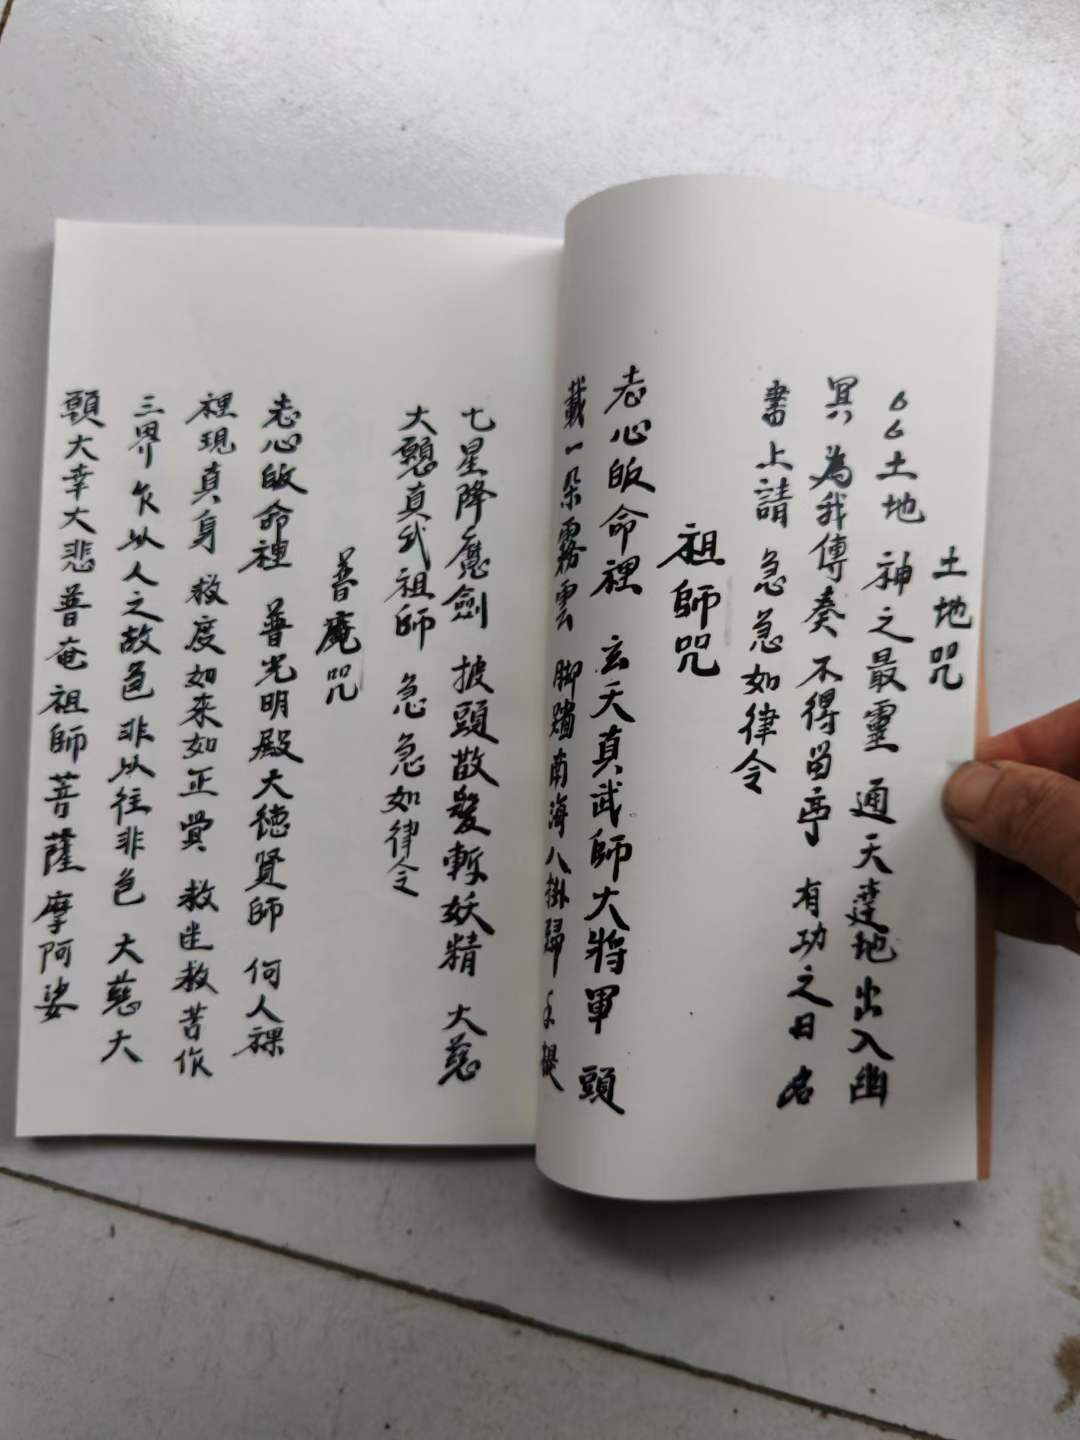 土地咒
土地 神之最靈 通天達地 出入幽
冥 為我傳奏 不得留亭 有功之日 名
書上請 急急如律令
祖師咒
志心皈命裡 玄天真武師大將軍 頭
載一朵霧雲 脚踏南海八掛歸 手提
七星降魔劍 披頭散髮斬妖精 大慈
大願真武祖師 急急如律令
普庵咒
志心皈命裡 普光明殿大德賢師 何人裸
裡現真身 救度如來如正覺 救迷救苦作
三界 乍以人之故色 非以往非色 大慈大
頭大幸大悲普奄祖師菩薩摩阿娑